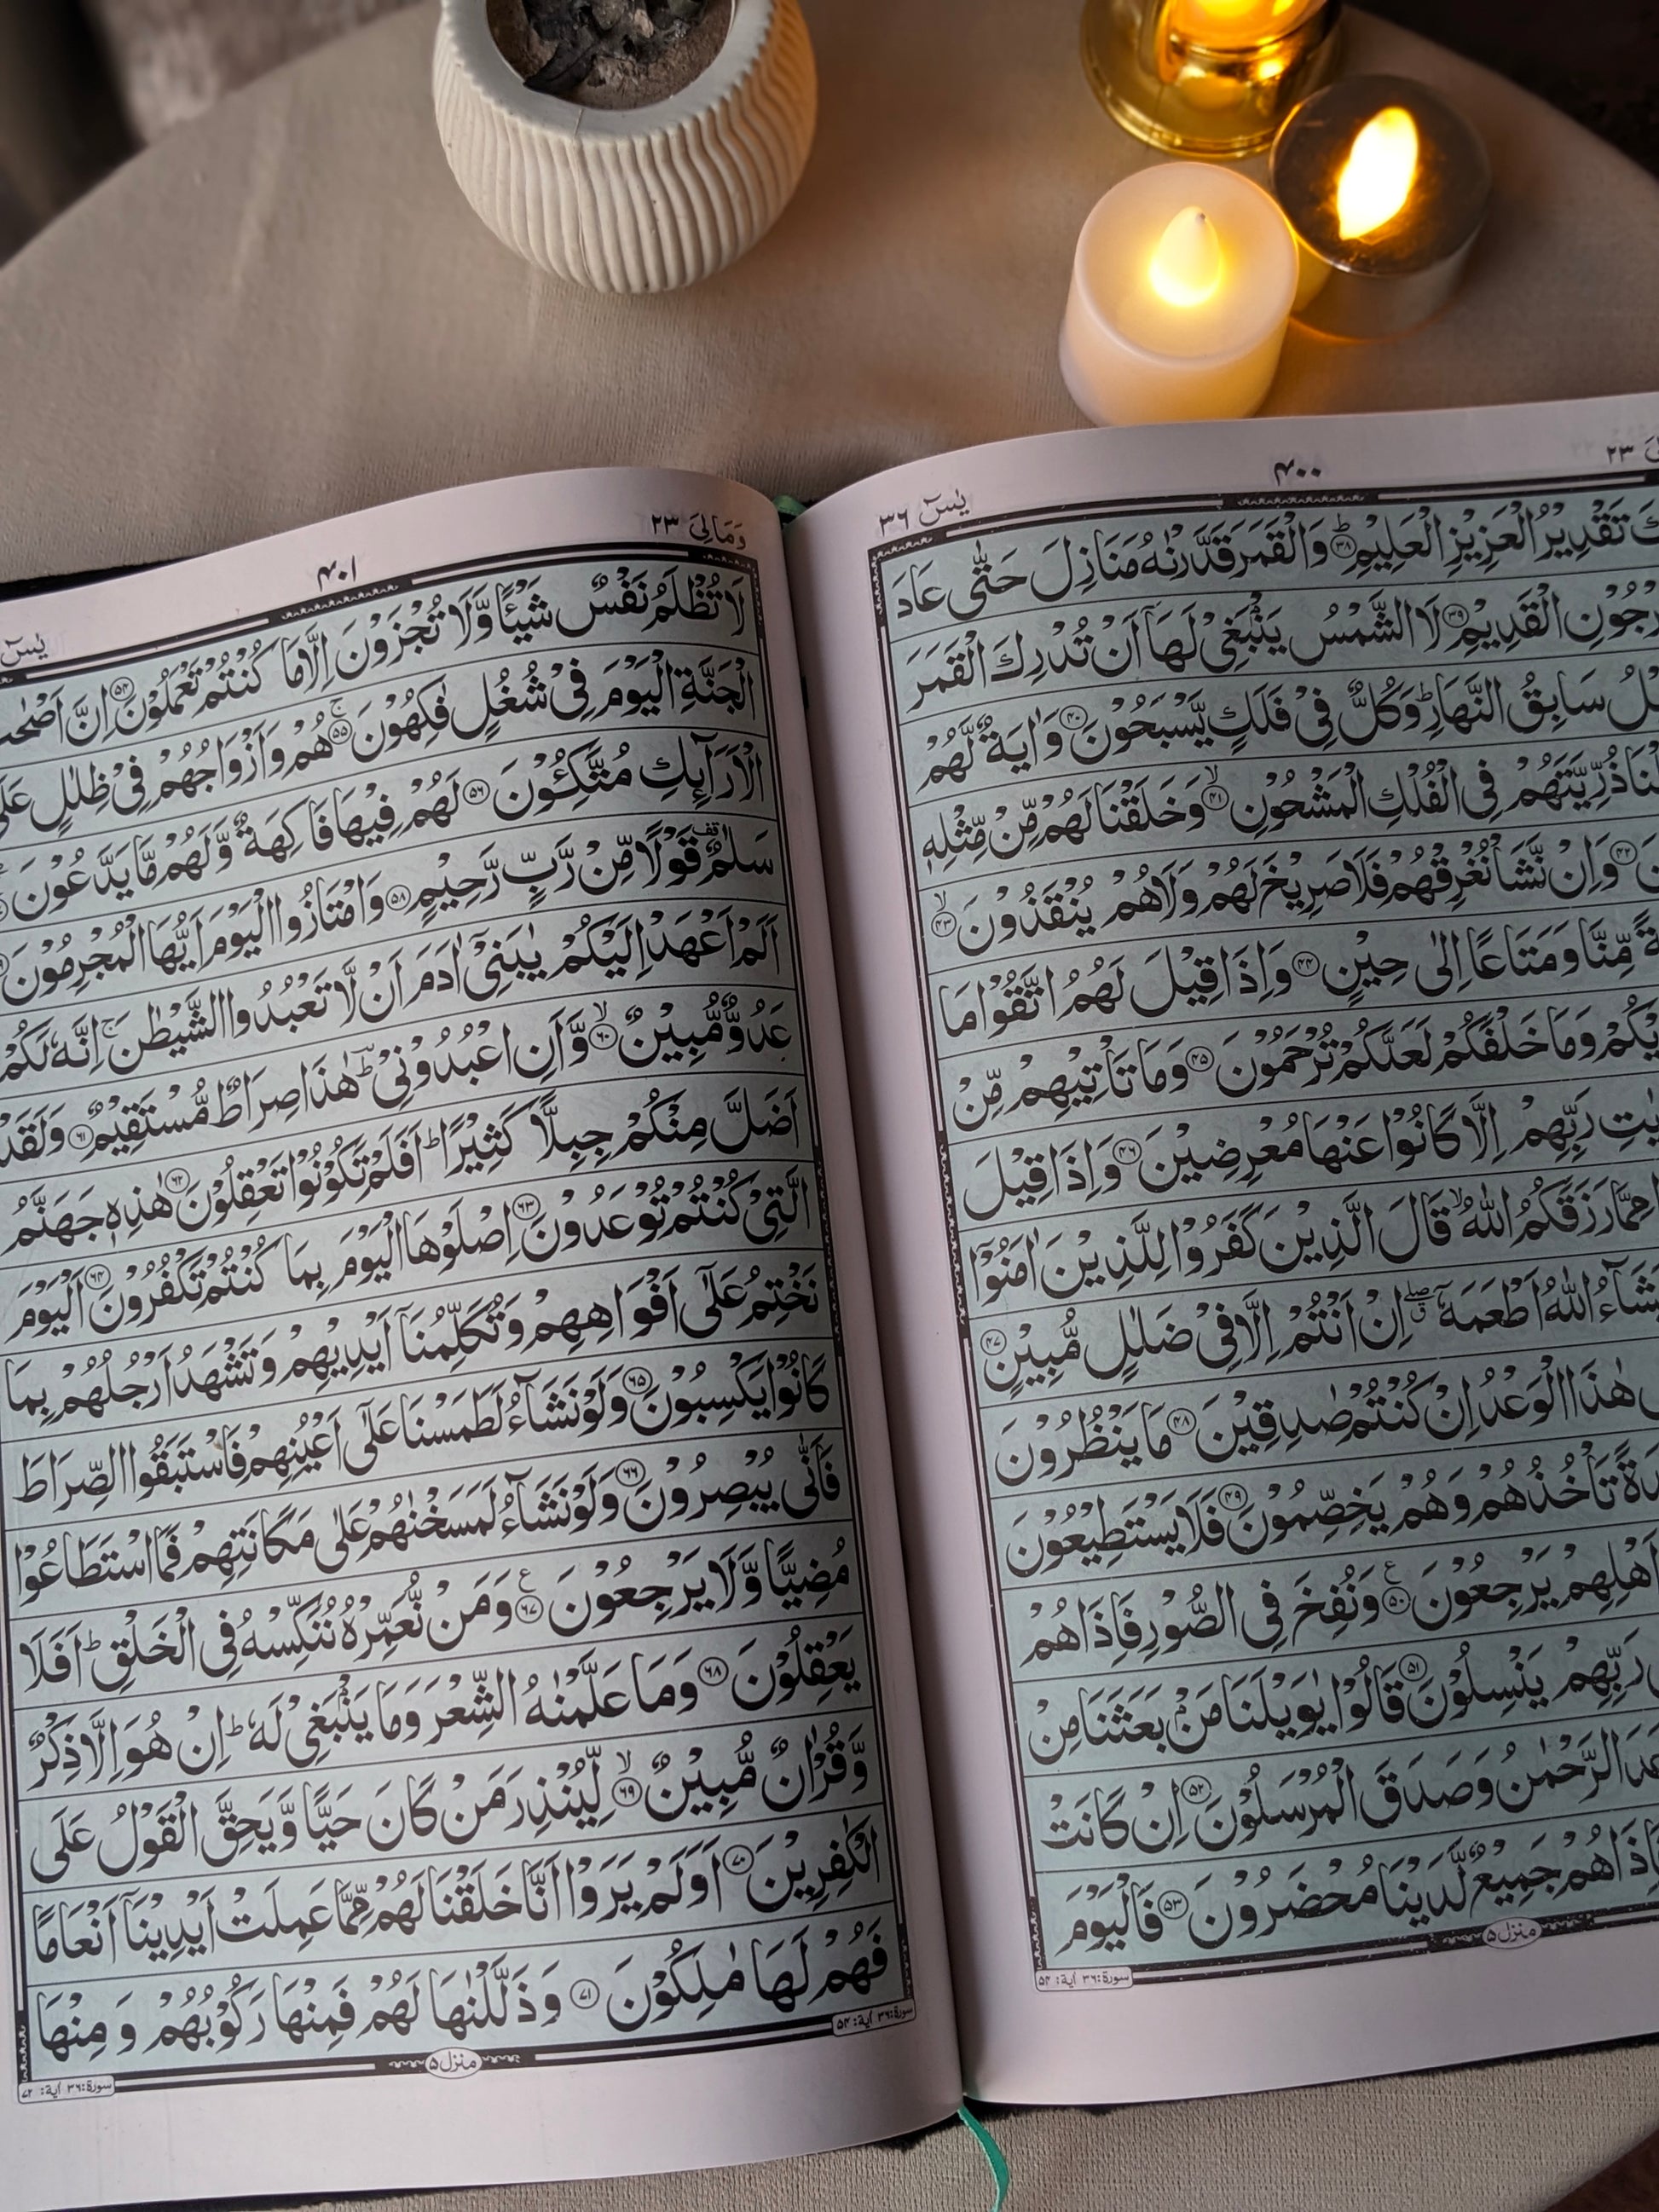 ٢٣
۴۰۰
یٰسٓ ٣٦
تَقْدِیْرُ الْعَزِیْزِ الْعَلِیْمِؕ ﴿۳۸﴾ وَالْقَمَرَ قَدَّرْنٰهُ مَنَازِلَ حَتّٰی عَادَ
الْقَدِیْمِ ﴿۳۹﴾ لَا الشَّمْسُ یَنْۢبَغِیْ لَهَاۤ اَنْ تُدْرِكَ الْقَمَرَ
سَابِقُ النَّهَارِؕ وَكُلٌّ فِیْ فَلَكٍ یَّسْبَحُوْنَ ﴿۴۰﴾ وَاٰیَةٌ لَّهُمْ
ذُرِّیَّتَهُمْ فِی الْفُلْكِ الْمَشْحُوْنِۙ ﴿۴۱﴾ وَخَلَقْنَا لَهُمْ مِّنْ مِّثْلِهٖ
﴿۴۲﴾ وَاِنْ نَّشَاْ نُغْرِقْهُمْ فَلَا صَرِیْخَ لَهُمْ وَلَا هُمْ یُنْقَذُوْنَۙ ﴿۴۳﴾
مِّنَّا وَمَتَاعًا اِلٰی حِیْنٍ ﴿۴۴﴾ وَاِذَا قِیْلَ لَهُمُ اتَّقُوْا مَا
وَمَا خَلْفَكُمْ لَعَلَّكُمْ تُرْحَمُوْنَ ﴿۴۵﴾ وَمَا تَاْتِیْهِمْ مِّنْ
رَبِّهِمْ اِلَّا كَانُوْا عَنْهَا مُعْرِضِیْنَ ﴿۴۶﴾ وَاِذَا قِیْلَ
مِمَّا رَزَقَكُمُ اللّٰهُۙ قَالَ الَّذِیْنَ كَفَرُوْا لِلَّذِیْنَ اٰمَنُوْۤا
اللّٰهُ اَطْعَمَهٗۤ ۖۗ اِنْ اَنْتُمْ اِلَّا فِیْ ضَلٰلٍ مُّبِیْنٍ ﴿۴۷﴾
هٰذَا الْوَعْدُ اِنْ كُنْتُمْ صٰدِقِیْنَ ﴿۴۸﴾ مَا یَنْظُرُوْنَ
تَاْخُذُهُمْ وَهُمْ یَخِصِّمُوْنَ ﴿۴۹﴾ فَلَا یَسْتَطِیْعُوْنَ
اَهْلِهِمْ یَرْجِعُوْنَ ﴿۵۰﴾ وَنُفِخَ فِی الصُّوْرِ فَاِذَا هُمْ
رَبِّهِمْ یَنْسِلُوْنَ ﴿۵۱﴾ قَالُوْا یٰوَیْلَنَا مَنْۢ بَعَثَنَا مِنْ
الرَّحْمٰنُ وَصَدَقَ الْمُرْسَلُوْنَ ﴿۵۲﴾ اِنْ كَانَتْ
هُمْ جَمِیْعٌ لَّدَیْنَا مُحْضَرُوْنَ ﴿۵۳﴾ فَالْیَوْمَ
منزل ۵
سورة:٣٦ اٰیة: ۵۴
وَمَالِیَ ٢٣
۴۰۱
یٰسٓ
لَا تُظْلَمُ نَفْسٌ شَیْـًٔا وَّلَا تُجْزَوْنَ اِلَّا مَا كُنْتُمْ تَعْمَلُوْنَ ﴿۵۴﴾ اِنَّ اَصْحٰبَ
الْجَنَّةِ الْیَوْمَ فِیْ شُغُلٍ فٰكِهُوْنَۚ ﴿۵۵﴾ هُمْ وَاَزْوَاجُهُمْ فِیْ ظِلٰلٍ عَلَی
الْاَرَآىِٕكِ مُتَّكِـُٔوْنَ ﴿۵۶﴾ لَهُمْ فِیْهَا فَاكِهَةٌ وَّلَهُمْ مَّا یَدَّعُوْنَ
سَلٰمٌ قف قَوْلًا مِّنْ رَّبٍّ رَّحِیْمٍ ﴿۵۸﴾ وَامْتَازُوا الْیَوْمَ اَیُّهَا الْمُجْرِمُوْنَ
اَلَمْ اَعْهَدْ اِلَیْكُمْ یٰبَنِیْۤ اٰدَمَ اَنْ لَّا تَعْبُدُوا الشَّیْطٰنَۚ اِنَّهٗ لَكُمْ
عَدُوٌّ مُّبِیْنٌۙ ﴿۶۰﴾ وَّاَنِ اعْبُدُوْنِیْؕ هٰذَا صِرَاطٌ مُّسْتَقِیْمٌ ﴿۶۱﴾ وَلَقَدْ
اَضَلَّ مِنْكُمْ جِبِلًّا كَثِیْرًاؕ اَفَلَمْ تَكُوْنُوْا تَعْقِلُوْنَ ﴿۶۲﴾ هٰذِهٖ جَهَنَّمُ
الَّتِیْ كُنْتُمْ تُوْعَدُوْنَ ﴿۶۳﴾ اِصْلَوْهَا الْیَوْمَ بِمَا كُنْتُمْ تَكْفُرُوْنَ ﴿۶۴﴾ اَلْیَوْمَ
نَخْتِمُ عَلٰۤی اَفْوَاهِهِمْ وَتُكَلِّمُنَاۤ اَیْدِیْهِمْ وَتَشْهَدُ اَرْجُلُهُمْ بِمَا
كَانُوْا یَكْسِبُوْنَ ﴿۶۵﴾ وَلَوْ نَشَآءُ لَطَمَسْنَا عَلٰۤی اَعْیُنِهِمْ فَاسْتَبَقُوا الصِّرَاطَ
فَاَنّٰی یُبْصِرُوْنَ ﴿۶۶﴾ وَلَوْ نَشَآءُ لَمَسَخْنٰهُمْ عَلٰی مَكَانَتِهِمْ فَمَا اسْتَطَاعُوْا
مُضِیًّا وَّلَا یَرْجِعُوْنَ ﴿۶۷﴾ وَمَنْ نُّعَمِّرْهُ نُنَكِّسْهُ فِی الْخَلْقِؕ اَفَلَا
یَعْقِلُوْنَ ﴿۶۸﴾ وَمَا عَلَّمْنٰهُ الشِّعْرَ وَمَا یَنْۢبَغِیْ لَهٗؕ اِنْ هُوَ اِلَّا ذِكْرٌ
وَّقُرْاٰنٌ مُّبِیْنٌۙ ﴿۶۹﴾ لِّیُنْذِرَ مَنْ كَانَ حَیًّا وَّیَحِقَّ الْقَوْلُ عَلَی
الْكٰفِرِیْنَ ﴿۷۰﴾ اَوَلَمْ یَرَوْا اَنَّا خَلَقْنَا لَهُمْ مِّمَّا عَمِلَتْ اَیْدِیْنَاۤ اَنْعَامًا
فَهُمْ لَهَا مٰلِكُوْنَ ﴿۷۱﴾ وَذَلَّلْنٰهَا لَهُمْ فَمِنْهَا رَكُوْبُهُمْ وَمِنْهَا
سورة:٣٦ اٰیة: ۵۴
منزل ۵
سورة:٣٦ اٰیة: ۷۲